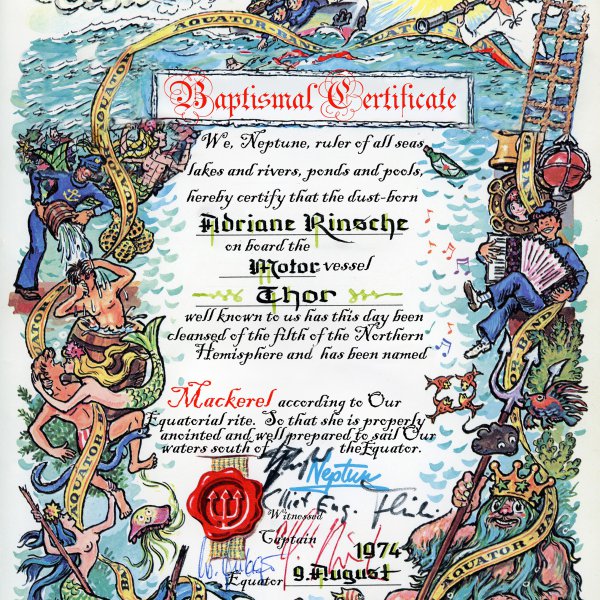 AQUATOR-BAND
AQUATOR
Baptismal Certificate
We, Neptune, ruler of all seas,
lakes and rivers, ponds and pools,
hereby certify that the dust-born
Adriane Rinsche
on board the
Motor vessel
Thor
well known to us has this day been
cleansed of the filth of the Northern
Hemisphere and has been named
Mackerel according to Our
Equatorial rite. So that she is properly
anointed and well prepared to sail Our
waters south of the Equator.
Neptune
Chief Eng.
Witnessed
Captain
1974
Equator 9. August